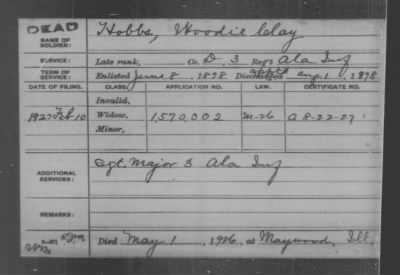 DEAD
NAME OF SOLDIER: Hobbs, Woodie Clay
SERVICE: Late rank, Co. D, 3 Reg't Ala Inf
TERM OF SERVICE: Enlisted June 8, 1898 Discharged Aug 1, 1898
DATE OF FILING. CLASS. APPLICATION NO. LAW. CERTIFICATE NO.
Invalid,
1927 Feb 10 Widow, 1,570,002 M-26 A 8-22-27
Minor,
ADDITIONAL SERVICES: Sgt. Major 3 Ala Inf
REMARKS:
Died May 1, 1926, at Maywood, Ill.